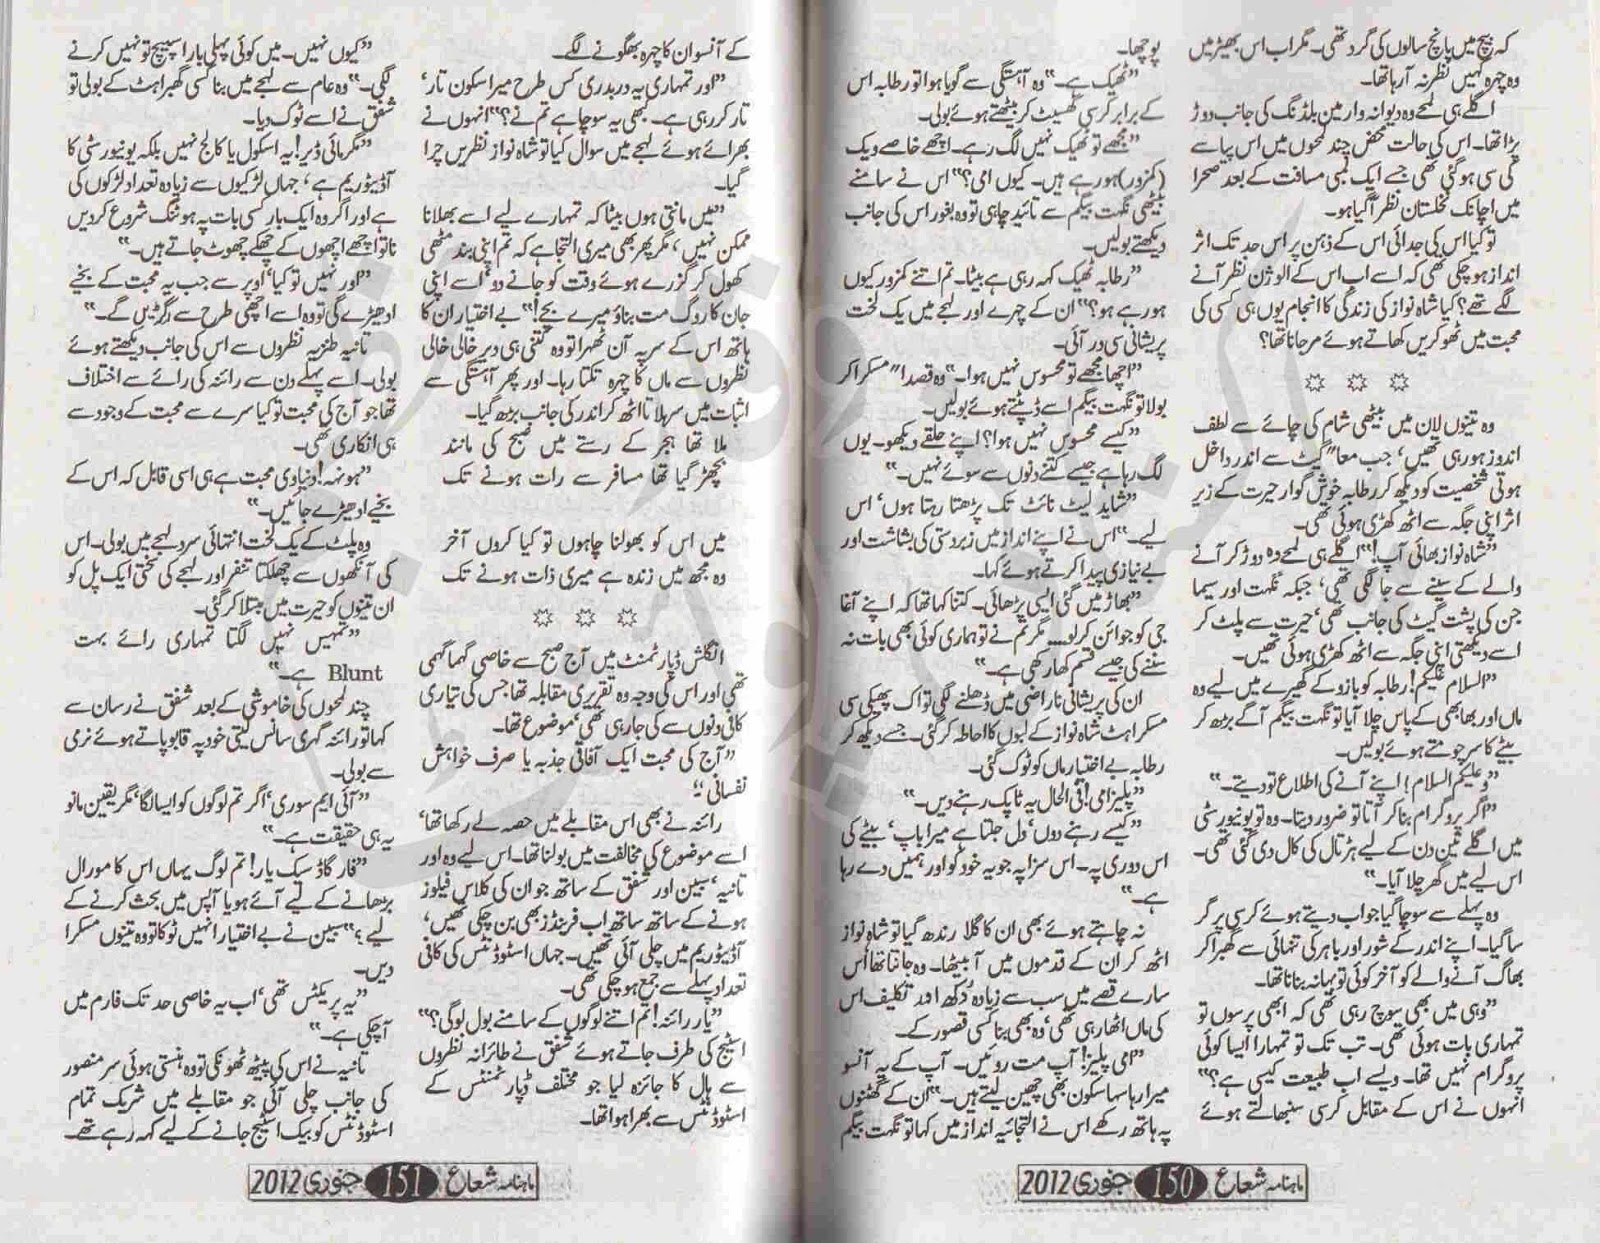 کہ بیچ میں پانچ سالوں کی گرد تھی۔ مگر اب اس بھیڑ میں
وہ چہرہ کہیں نظر نہ آ رہا تھا۔
اگلے ہی لمحے وہ دیوانہ وار مین بلڈنگ کی جانب دوڑ
پڑا تھا۔ اس کی حالت محض چند لمحوں میں اس پیاسے
کی سی ہو گئی تھی جسے ایک لمبی مسافت کے بعد صحرا
میں اچانک نخلستان نظر آ گیا ہو۔
تو کیا اس کی جدائی اس کے ذہن پر اس حد تک اثر
انداز ہو چکی تھی کہ اسے اب اس کے الوژن نظر آنے
لگے تھے؟ کیا شاہ نواز کی زندگی کا انجام یوں ہی کسی کی
محبت میں ٹھوکریں کھاتے ہوئے مر جانا تھا؟
وہ تینوں لان میں بیٹھی شام کی چائے سے لطف
اندوز ہو رہی تھیں، جب معاً گیٹ سے اندر داخل
ہوتی شخصیت کو دیکھ کر رطابہ خوش گوار حیرت کے زیر
اثر اپنی جگہ سے اٹھ کھڑی ہوئی تھی۔
”شاہ نواز بھائی آپ!“ اگلے ہی لمحے وہ دوڑ کر آنے
والے کے سینے سے جا لگی تھی، جبکہ نگہت اور سیما
جن کی پشت گیٹ کی جانب تھی، حیرت سے پلٹ کر
اسے دیکھتی اپنی جگہ سے اٹھ کھڑی ہوئی تھیں۔
”السلام علیکم! رطابہ کو بازو کے گھیرے میں لیے وہ
ماں اور بھابھی کے پاس چلا آیا تو نگہت بیگم آگے بڑھ کر
بیٹے کا سر چومتے ہوئے بولیں۔
”وعلیکم السلام! اپنے آنے کی اطلاع تو دیتے۔“
”اگر پروگرام بنا کر آتا تو ضرور دیتا۔ وہ تو یونیورسٹی
میں اگلے تین دن کے لیے ہڑتال کی کال دی گئی تھی۔
اس لیے میں گھر چلا آیا۔“
وہ پہلے سے سوچا گیا جواب دیتے ہوئے کرسی پر گر
سا گیا۔ اپنے اندر کے شور اور باہر کی تنہائی سے گھبرا کر
بھاگ آنے والے کو آخر کوئی تو بہانہ بنانا تھا۔
”وہی میں بھی سوچ رہی تھی کہ ابھی پرسوں تو
تمہاری بات ہوئی تھی۔ تب تک تو تمہارا ایسا کوئی
پروگرام نہیں تھا۔ ویسے اب طبیعت کیسی ہے؟“
انہوں نے اس کے مقابل کرسی سنبھالتے ہوئے
پوچھا۔
”ٹھیک ہے۔“ وہ آہستگی سے گویا ہوا تو رطابہ اس
کے برابر کرسی گھسیٹ کر بیٹھتے ہوئے بولی۔
”مجھے تو ٹھیک نہیں لگ رہے۔ اچھے خاصے ویک
(کمزور) ہو رہے ہیں۔ کیوں امی؟“ اس نے سامنے
بیٹھی نگہت بیگم سے تائید چاہی تو وہ بغور اس کی جانب
دیکھتے بولیں۔
”رطابہ ٹھیک کہہ رہی ہے بیٹا۔ تم اتنے کمزور کیوں
ہو رہے ہو؟“ ان کے چہرے اور لہجے میں یک لخت
پریشانی سی در آئی۔
”اچھا مجھے تو محسوس نہیں ہوا۔“ وہ قصداً مسکرا کر
بولا تو نگہت بیگم اسے ڈپٹتے ہوئے بولیں۔
”کیسے محسوس نہیں ہوا؟ اپنے حلقے دیکھو۔ یوں
لگ رہا ہے جیسے کتنے دنوں سے سوئے نہیں۔“
”شاید لیٹ نائٹ تک پڑھتا رہتا ہوں، اس
لیے۔“ اس نے اپنے انداز میں زبردستی کی بشاشت اور
بے نیازی پیدا کرتے ہوئے کہا۔
”بھاڑ میں گئی ایسی پڑھائی۔ کتنا کہا تھا کہ اپنے آغا
جی کو جوائن کر لو.... مگر تم نے تو ہماری کوئی بھی بات نہ
سننے کی جیسے قسم کھا رکھی ہے۔“
ان کی پریشانی ناراضی میں ڈھلنے لگی تو اک پھیکی سی
مسکراہٹ شاہ نواز کے لبوں کا احاطہ کر گئی۔ جسے دیکھ کر
رطابہ بے اختیار ماں کو ٹوک گئی۔
”پلیز امی! فی الحال یہ ٹاپک رہنے دیں۔“
”کیسے رہنے دوں، دل جلتا ہے میرا باپ، بیٹے کی
اس دوری پہ۔ اس سزا پہ جو یہ خود کو اور ہمیں دے رہا
ہے۔“
نہ چاہتے ہوئے بھی ان کا گلا رندھ گیا تو شاہ نواز
اٹھ کر ان کے قدموں میں آ بیٹھا۔ وہ جانتا تھا اس
سارے قصے میں سب سے زیادہ دُکھ اور تکلیف اس
کی ماں اٹھا رہی تھی، وہ بھی بنا کسی قصور کے۔
”امی پلیز! آپ مت روئیں۔ آپ کے یہ آنسو
میرا رہا سہا سکون بھی چھین لیتے ہیں۔“ ان کے گھٹنوں
پہ ہاتھ رکھے اس نے التجائیہ انداز میں کہا تو نگہت بیگم
ماہنامہ شعاع 150 جنوری 2012
کے آنسو ان کا چہرہ بھگونے لگے۔
”اور تمہاری یہ دربدری کس طرح میرا سکون تار،
تار کر رہی ہے۔ کبھی یہ سوچا ہے تم نے؟“ انہوں نے
بھرائے ہوئے لہجے میں سوال کیا تو شاہ نواز نظریں چرا
گیا۔
”میں مانتی ہوں بیٹا کہ تمہارے لیے اسے بھلانا
ممکن نہیں، مگر پھر بھی میری التجا ہے کہ تم اپنی بند مٹھی
کھول کر گزرے ہوئے وقت کو جانے دو، اسے اپنی
جان کا روگ مت بناؤ میرے بچے!“ بے اختیار ان کا
ہاتھ اس کے سر پہ آن ٹھہرا تو وہ کتنی ہی دیر خالی خالی
نظروں سے ماں کا چہرہ تکتا رہا۔ اور پھر آہستگی سے
اثبات میں سر ہلاتا اٹھ کر اندر کی جانب بڑھ گیا۔
ملا تھا ہجر کے رستے میں صبح کی مانند
بچھڑ گیا تھا مسافر سے رات ہونے تک
میں اس کو بھولنا چاہوں تو کیا کروں آخر
وہ مجھ میں زندہ ہے میری ذات ہونے تک
انگلش ڈپارٹمنٹ میں آج صبح سے خاصی گہما گہمی
تھی اور اس کی وجہ وہ تقریری مقابلہ تھا جس کی تیاری
کافی دنوں سے کی جا رہی تھی، موضوع تھا۔
”آج کی محبت ایک آفاقی جذبہ یا صرف خواہش
نفسانی“
رائنہ نے بھی اس مقابلے میں حصہ لے رکھا تھا،
اسے موضوع کی مخالفت میں بولنا تھا۔ اس لیے وہ اور
تانیہ، سبین اور شفق کے ساتھ جو ان کی کلاس فیلوز
ہونے کے ساتھ ساتھ اب فرینڈز بھی بن چکی تھیں،
آڈیٹوریم میں چلی آئی تھیں۔ جہاں اسٹوڈنٹس کی کافی
تعداد پہلے سے جمع ہو چکی تھی۔
”یار رائنہ! تم اتنے لوگوں کے سامنے بول لو گی؟“
اسٹیج کی طرف جاتے ہوئے شفق نے طائرانہ نظروں
سے ہال کا جائزہ لیا جو مختلف ڈپارٹمنٹس کے
اسٹوڈنٹس سے بھرا ہوا تھا۔
”کیوں نہیں۔ میں کوئی پہلی بار اسپیچ تو نہیں کرنے
لگی۔“ وہ عام سے لہجے میں بنا کسی گھبراہٹ کے بولی تو
شفق نے اسے ٹوک دیا۔
”مگر مائی ڈیر! یہ اسکول یا کالج نہیں بلکہ یونیورسٹی کا
آڈیٹوریم ہے، جہاں لڑکیوں سے زیادہ تعداد لڑکوں کی
ہے اور اگر وہ ایک بار کسی بات پہ ہوٹنگ شروع کر دیں
نا تو اچھے اچھوں کے چھکے چھوٹ جاتے ہیں۔“
”اور نہیں تو کیا، اوپر سے جب یہ محبت کے بخیے
ادھیڑے گی تو وہ اسے اچھی طرح سے رگڑیں گے۔“
تانیہ طنزیہ نظروں سے اس کی جانب دیکھتے ہوئے
بولی۔ اسے پہلے دن سے رائنہ کی رائے سے اختلاف
تھا جو آج کی محبت تو کیا سرے سے محبت کے وجود سے
ہی انکاری تھی۔
”ہونہہ! دنیاوی محبت ہے ہی اسی قابل کہ اس کے
بخیے ادھیڑے جائیں۔“
وہ پلٹ کے یک لخت انتہائی سرد لہجے میں بولی۔ اس
کی آنکھوں سے چھلکتا تنفر اور لہجے کی سختی ایک پل کو
ان تینوں کو حیرت میں مبتلا کر گئی۔
”تمہیں نہیں لگتا تمہاری رائے بہت
Blunt ہے۔“
چند لمحوں کی خاموشی کے بعد شفق نے رسان سے
کہا تو رائنہ گہری سانس لیتی خود پہ قابو پاتے ہوئے نرمی
سے بولی۔
”آئی ایم سوری، اگر تم لوگوں کو ایسا لگا، مگر یقین مانو
یہ ہی حقیقت ہے۔“
”فار گاڈ سیک یار! تم لوگ یہاں اس کا مورال
بڑھانے کے لیے آئے ہو یا آپس میں بحث کرنے کے
لیے؟“ سبین نے بے اختیار انہیں ٹوکا تو وہ تینوں مسکرا
دیں۔
”یہ پریکٹس تھی، اب یہ خاصی حد تک فارم میں
آ چکی ہے۔“
تانیہ نے اس کی پیٹھ ٹھونکی تو وہ ہنستی ہوئی سر منصور
کی جانب چلی آئی جو مقابلے میں شریک تمام
اسٹوڈنٹس کو بیک اسٹیج جانے کے لیے کہہ رہے تھے۔
ماہنامہ شعاع 151 جنوری 2012